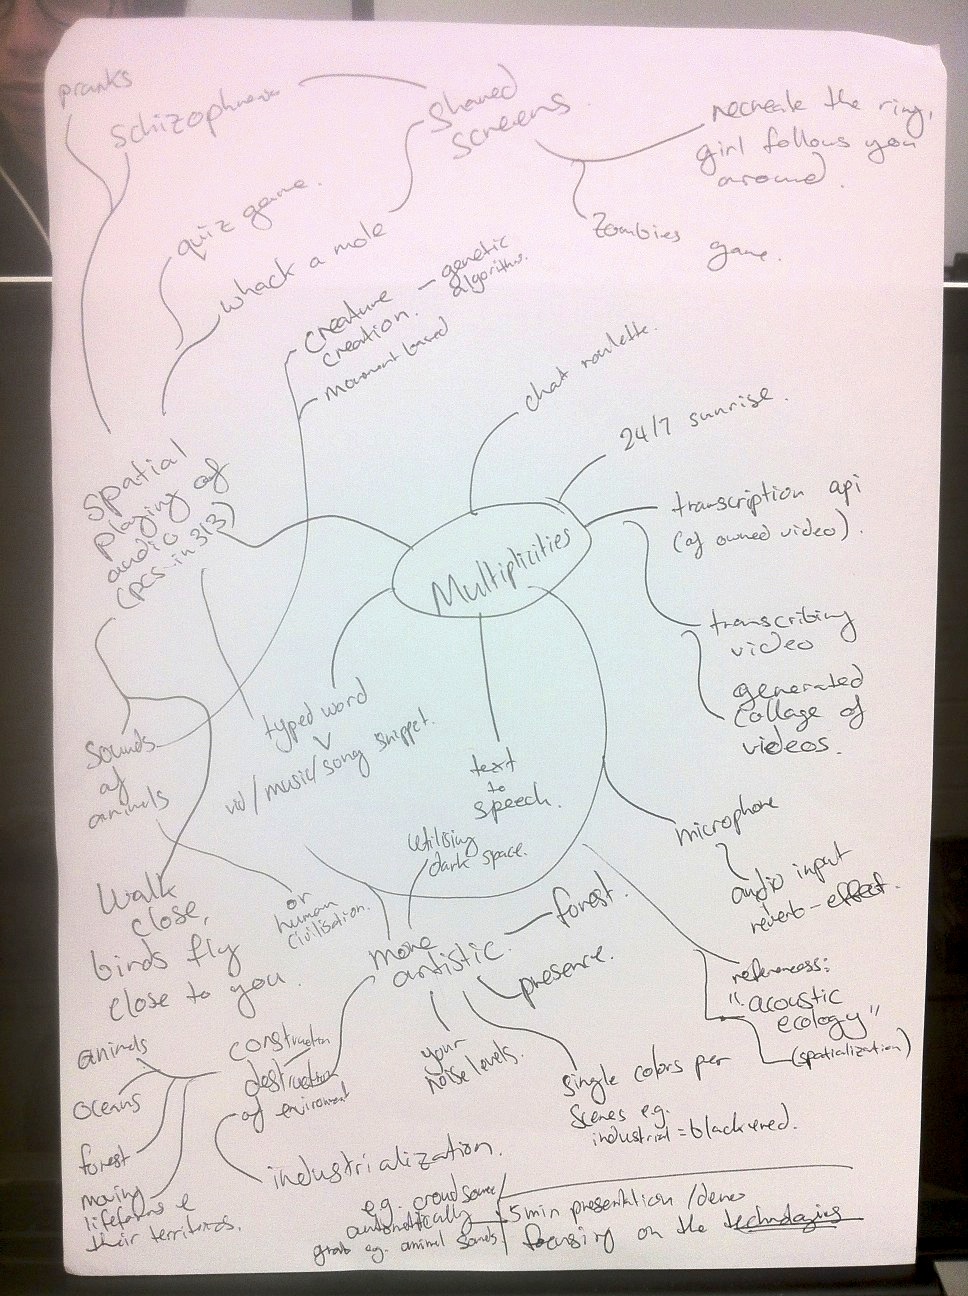 pranks
schizophrenia
shared
screens
recreate the ring,
girl follows you
around.
zombies game.
quiz game.
whack a mole
creature
creation. - genetic
algorithms.
movement based
chat roulette.
24/7 sunrise.
spatial
playing of
audio
(pcs in 313)
Multiplicities
transcription api
(of owned video).
transcribing
video
generated
collage of
videos.
typed word
v
vid/music/song snippet.
text
to
speech.
microphone
audio input
reverb-effect.
sounds
of
animals
or
human
civilisation.
Walk
close,
birds fly
close to you.
utilising
dark space.
more
artistic.
forest.
presence.
references:
"acoustic
ecology"
(spatialization)
your
noise levels.
single colors per
scenes e.g.
industrial = blackened.
construction
destruction
of enviroment
animals
oceans
forest
moving
lifeforms &
their territories.
industrialization.
e.g. crowdsource/
automatically
grab e.g. animal sounds
5 min presentation/demo
focusing on the technologies